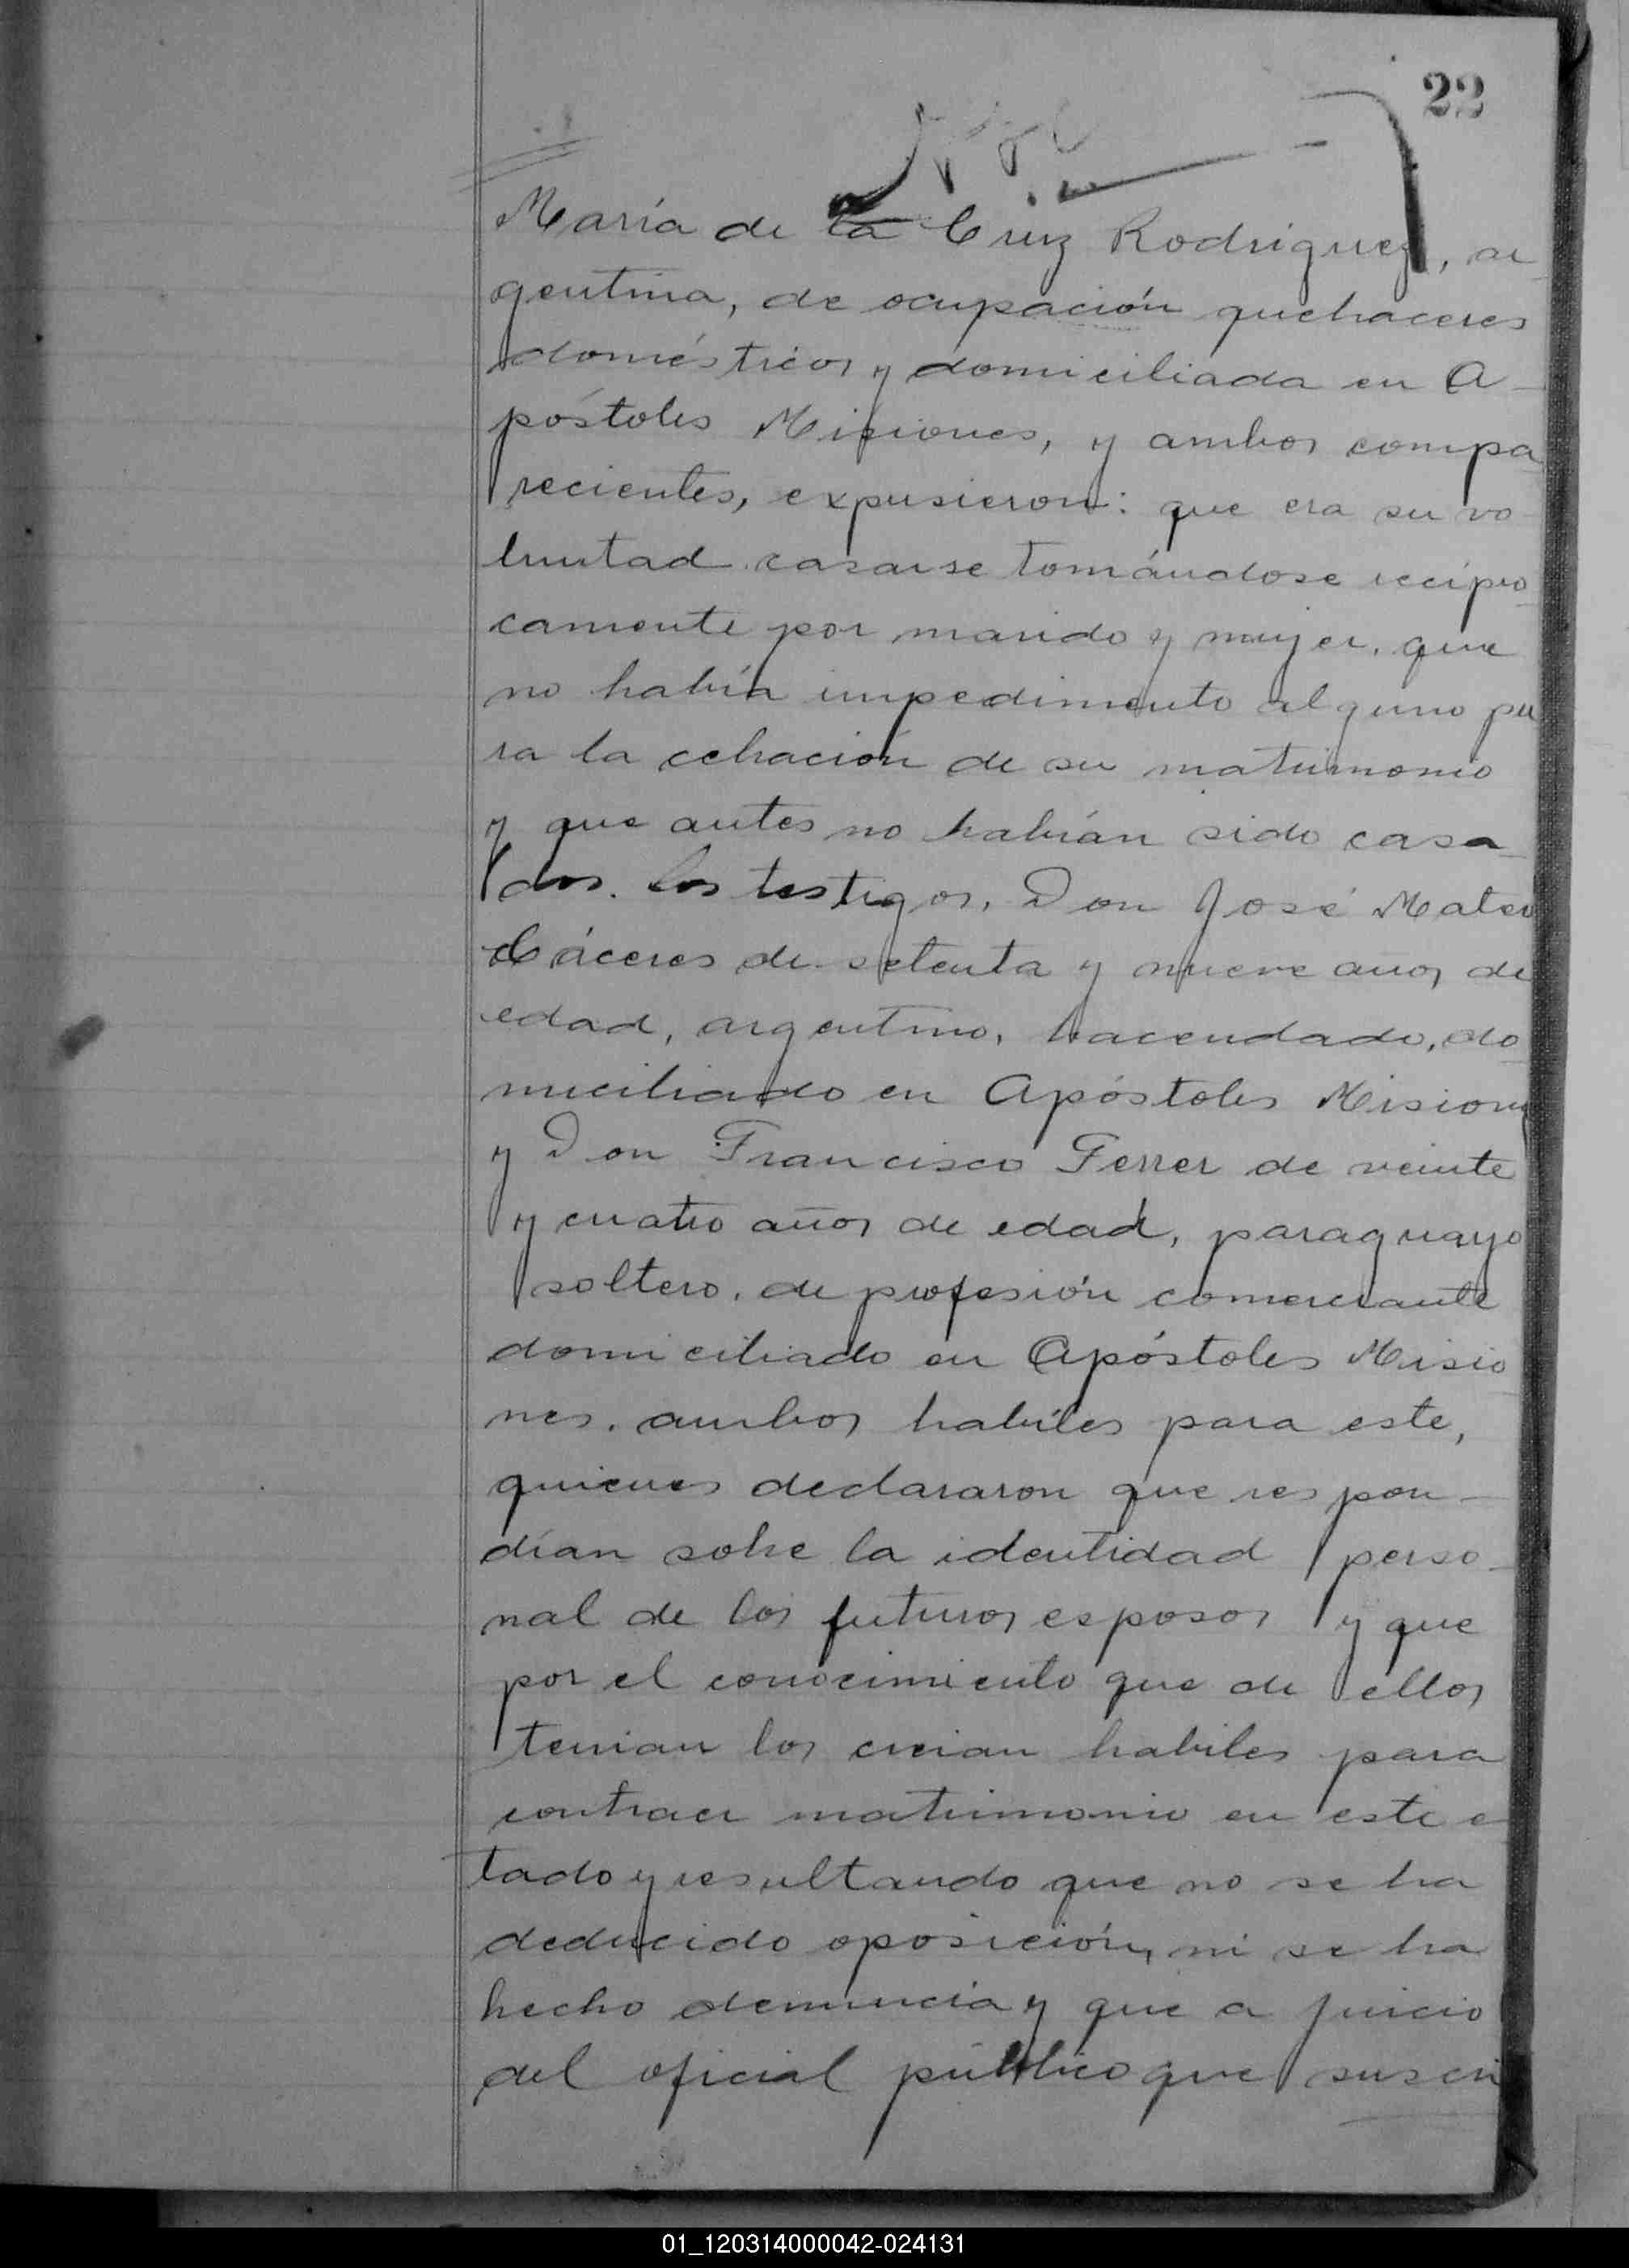 22
María de la Cruz Rodriguez, ar
gentina, de ocupación quehaceres
domésticos y domiciliada en A-
póstoles Misiones, y ambos compa
recientes, expusieron: que era su vo
luntad casarse tomándose recipro
camente por marido y mujer, que
no había impedimento alguno pa
ra la celración de su matrimonio
y que antes no habían sido casa-
dos. los testigos, Don José Mateo
Cáceres de setenta y nueve años de
edad, argentino, hacendado, do
miciliado en Apóstoles Misiones
y Don Francisco Ferrer de veinte
y cuatro años de edad, paraguayo
soltero, de profesión comerciante
domiciliado en Apóstoles Misio
nes. ambos habiles para este,
quienes declararon que respon-
dían sobre la identidad perso-
nal de los futuros esposos y que
por el conocimiento que de ellos
tenian los creian habiles para
contraer matrimonio en este e
tado y resultando que no se ha
deducido oposición, ni se ha
hecho denuncia y que a juicio
del oficial público que suscri
01_120314000042-024131